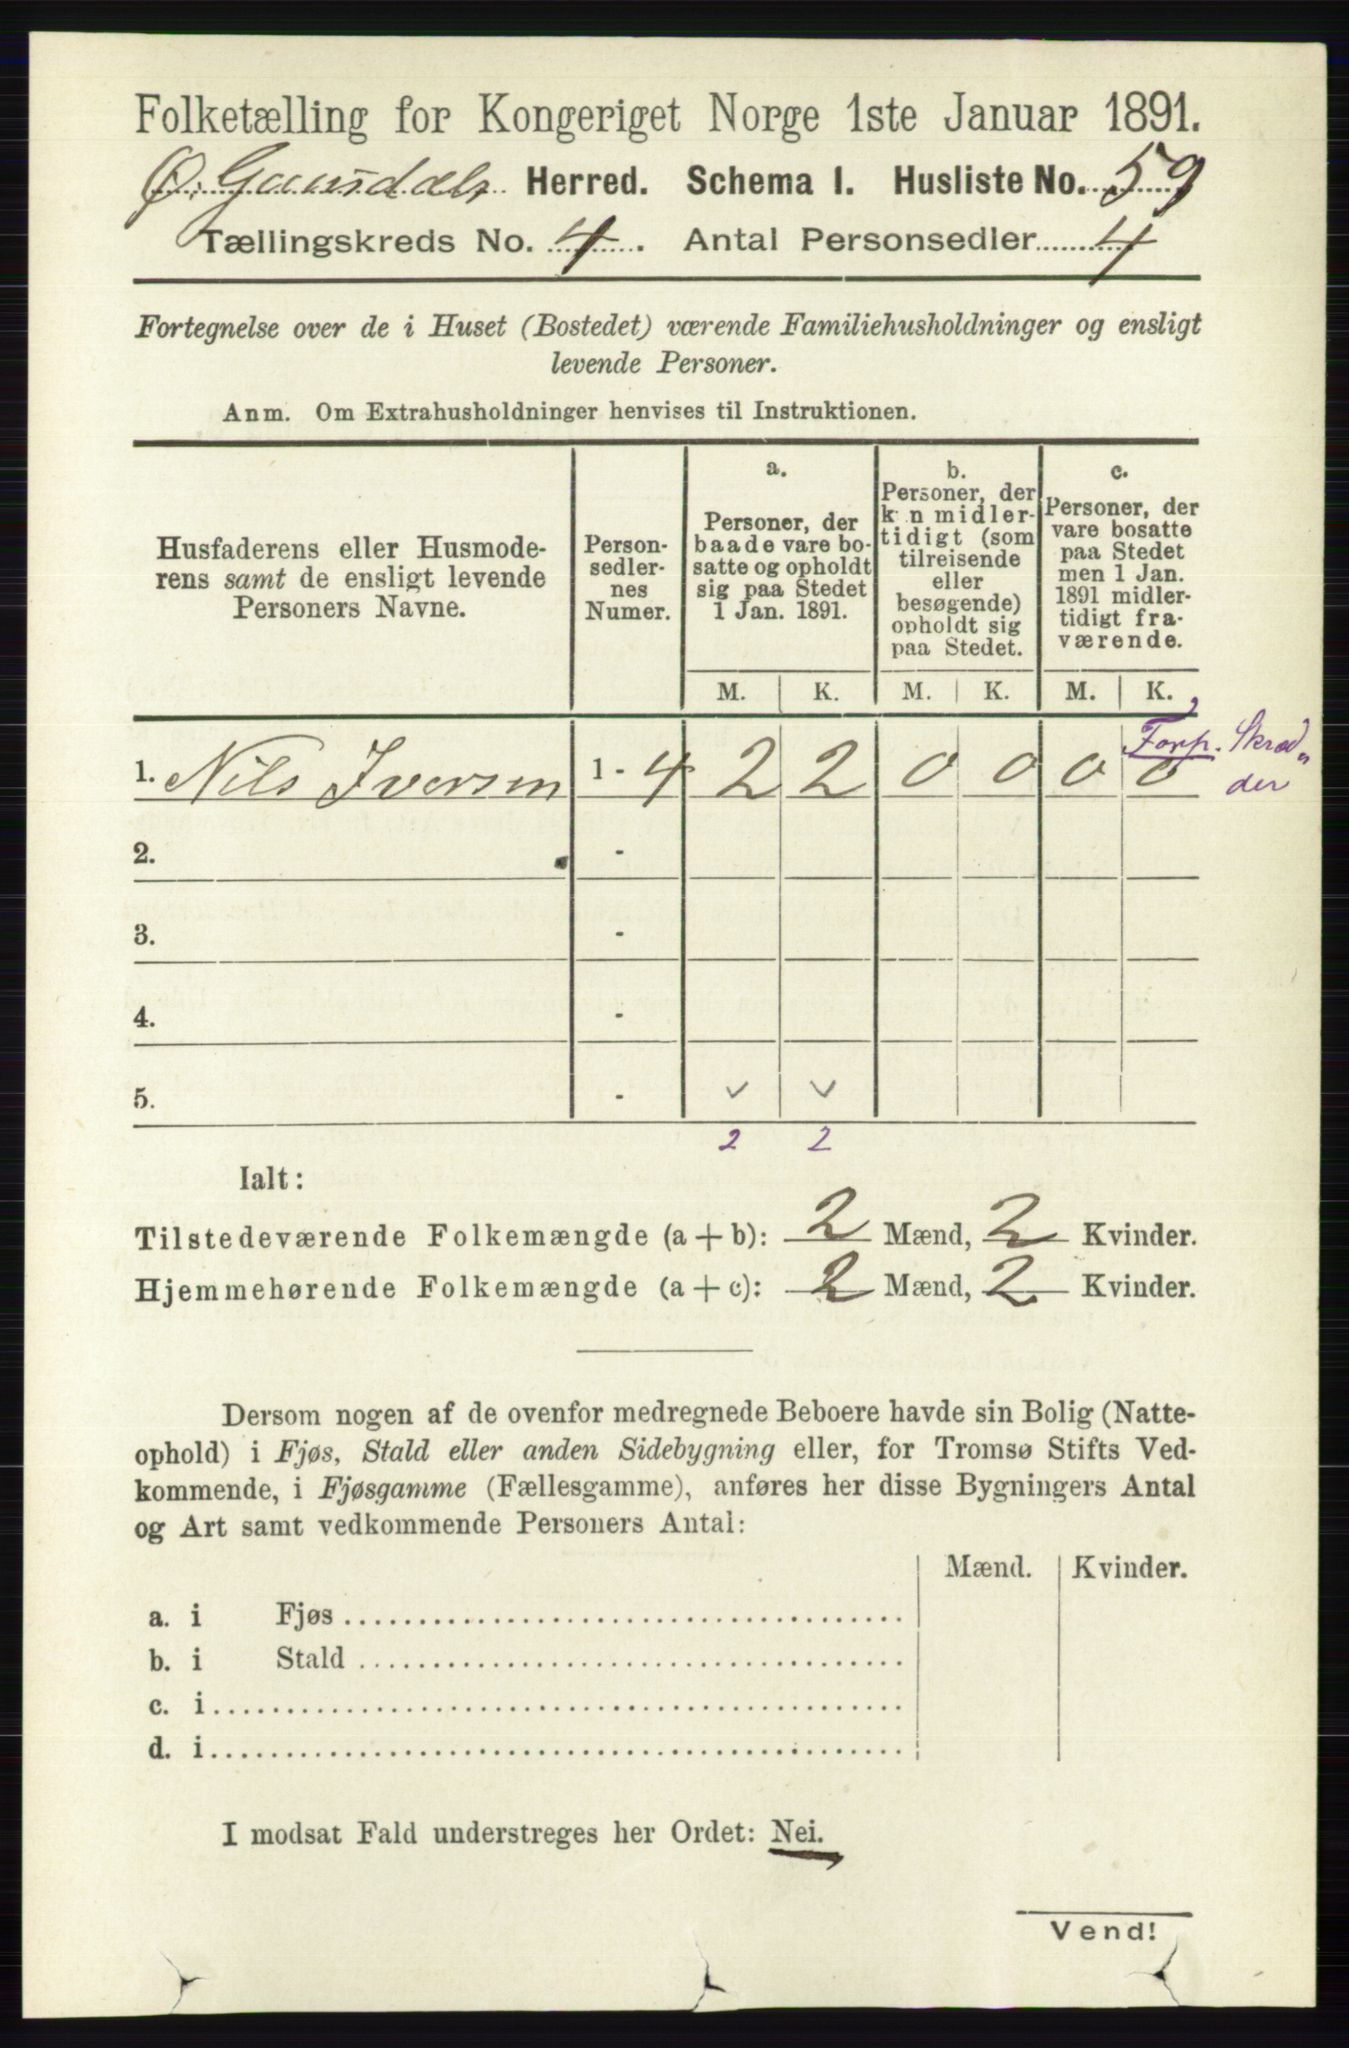 Folketælling for Kongeriget Norge 1ste Januar 1891.
Ø. Gausdals Herred. Schema I. Husliste No. 59
Tællingskreds No. 4. Antal Personsedler 4
Fortegnelse over de i Huset (Bostedet) værende Familiehusholdninger og ensligt
levende Personer.
Anm. Om Extrahusholdninger henvises til Instruktionen.
Husfaderens eller Husmode-
rens samt de ensligt levende
Personers Navne.
Person-
sedler-
nes
Numer.
a.
Personer, der
baade vare bo-
satte og opholdt
sig paa Stedet
1 Jan. 1891.
b.
Personer, der
kun midler-
tidigt (som
tilreisende
eller
besøgende)
opholdt sig
paa Stedet.
c.
Personer, der
vare bosatte
paa Stedet
men 1 Jan.
1891 midler-
tidigt fra-
værende.
M. K. M. K. M. K.
1. Nils Iversen 1 - 4 2 2 0 0 0 0
Forp. Skræd„
der
2. -
3. -
4. -
5. -
2 2
Ialt:
Tilstedeværende Folkemængde (a + b): 2 Mænd, 2 Kvinder.
Hjemmehørende Folkemængde (a + c): 2 Mænd, 2 Kvinder.
Dersom nogen af de ovenfor medregnede Beboere havde sin Bolig (Natte-
ophold) i Fjøs, Stald eller anden Sidebygning eller, for Tromsø Stifts Ved-
kommende, i Fjøsgamme (Fællesgamme), anføres her disse Bygningers Antal
og Art samt vedkommende Personers Antal:
Mænd. Kvinder.
a. i Fjøs
b. i Stald
c. i
d. i
I modsat Fald understreges her Ordet: Nei.
Vend!